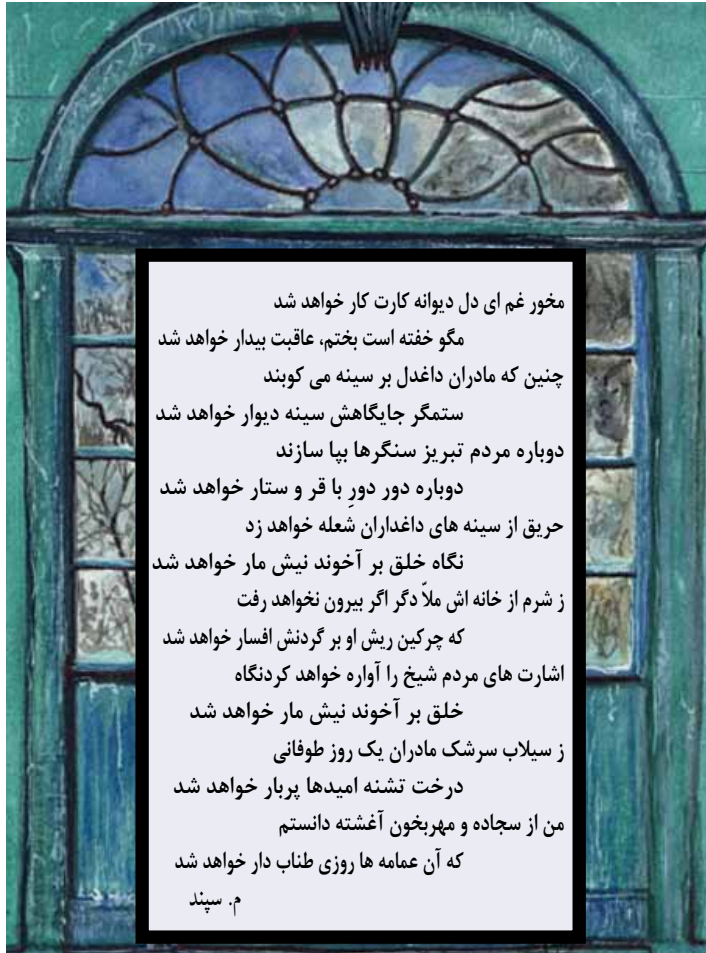 مخور غم ای دل دیوانه کارت کار خواهد شد
مگو خفته است بختم، عاقبت بیدار خواهد شد
چنین که مادران داغدل بر سینه می کوبند
ستمگر جایگاهش سینه دیوار خواهد شد
دوباره مردم تبریز سنگرها بپا سازند
دوباره دور دورِ با قر و ستار خواهد شد
حریق از سینه های داغداران شعله خواهد زد
نگاه خلق بر آخوند نیش مار خواهد شد
ز شرم از خانه اش ملاّ دگر اگر بیرون نخواهد رفت
که چرکین ریش او بر گردنش افسار خواهد شد
اشارت های مردم شیخ را آواره خواهد کردنگاه
خلق بر آخوند نیش مار خواهد شد
ز سیلاب سرشک مادران یک روز طوفانی
درخت تشنه امیدها پربار خواهد شد
من از سجاده و مهربخون آغشته دانستم
که آن عمامه ها روزی طناب دار خواهد شد
م. سپند